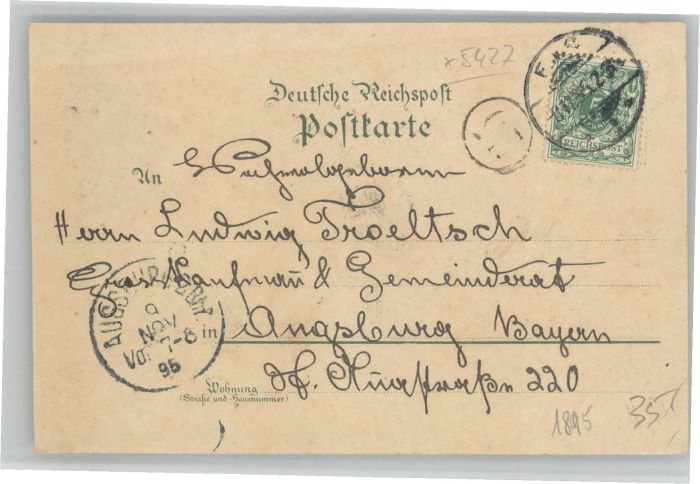 x5427
Deutsche Reichspost
Postkarte
5 REICHSPOST
An
Herrn Ludwig Troeltsch
Kaufmañ & Gemeinderat
in Augsburg Bayern
Wohnung
(Straße und Hausnummer)
220
AUGSBURG
9
NOV
Vor. 7-8
95
1895
35